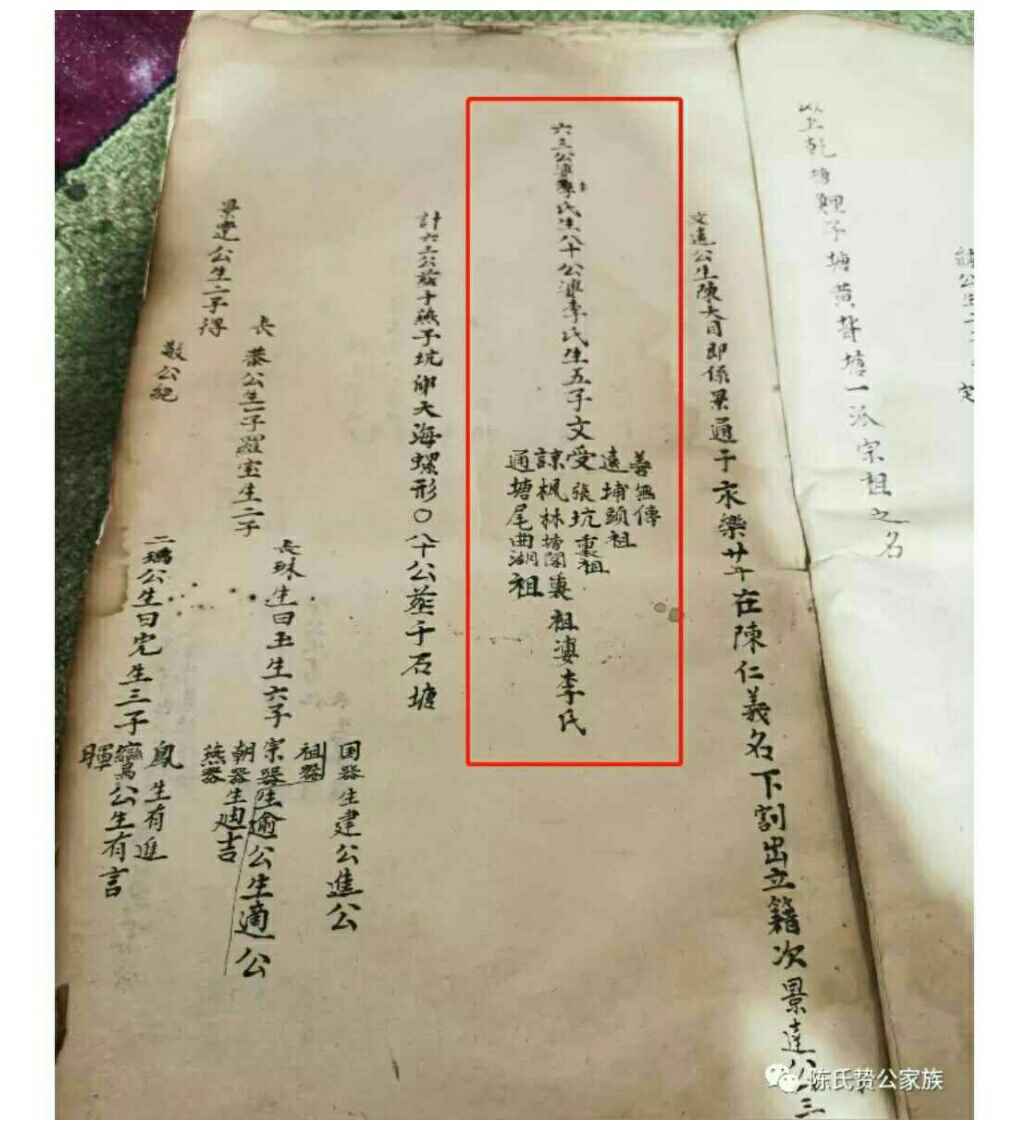 以上乾塘鯉子塘黄聲塘一派宗祖之名
文遠公生陳大目即係景通于永樂廿年在陳仁義名下割出立籍次景達公
六三公婆李氏生八十公婆李氏生五子文
善無傳
遠埔頭祖
受張坑裏祖
諒楓林塘閣裏
通塘尾曲湖祖
祖婆李氏
計六三公葬于燕子坑仰天海螺形〇八十公葬于石塘
景達公生二子得
長恭公生一子羅室生二子
敬公絕
長珠生曰玉生六子
国器生建公進公
祖器
宗器生逾公生適公
朝器生廸吉
燕器
二瑀公生曰宪生三子
鳳生有進
鸞公生有言
暉
陈氏贽公家族